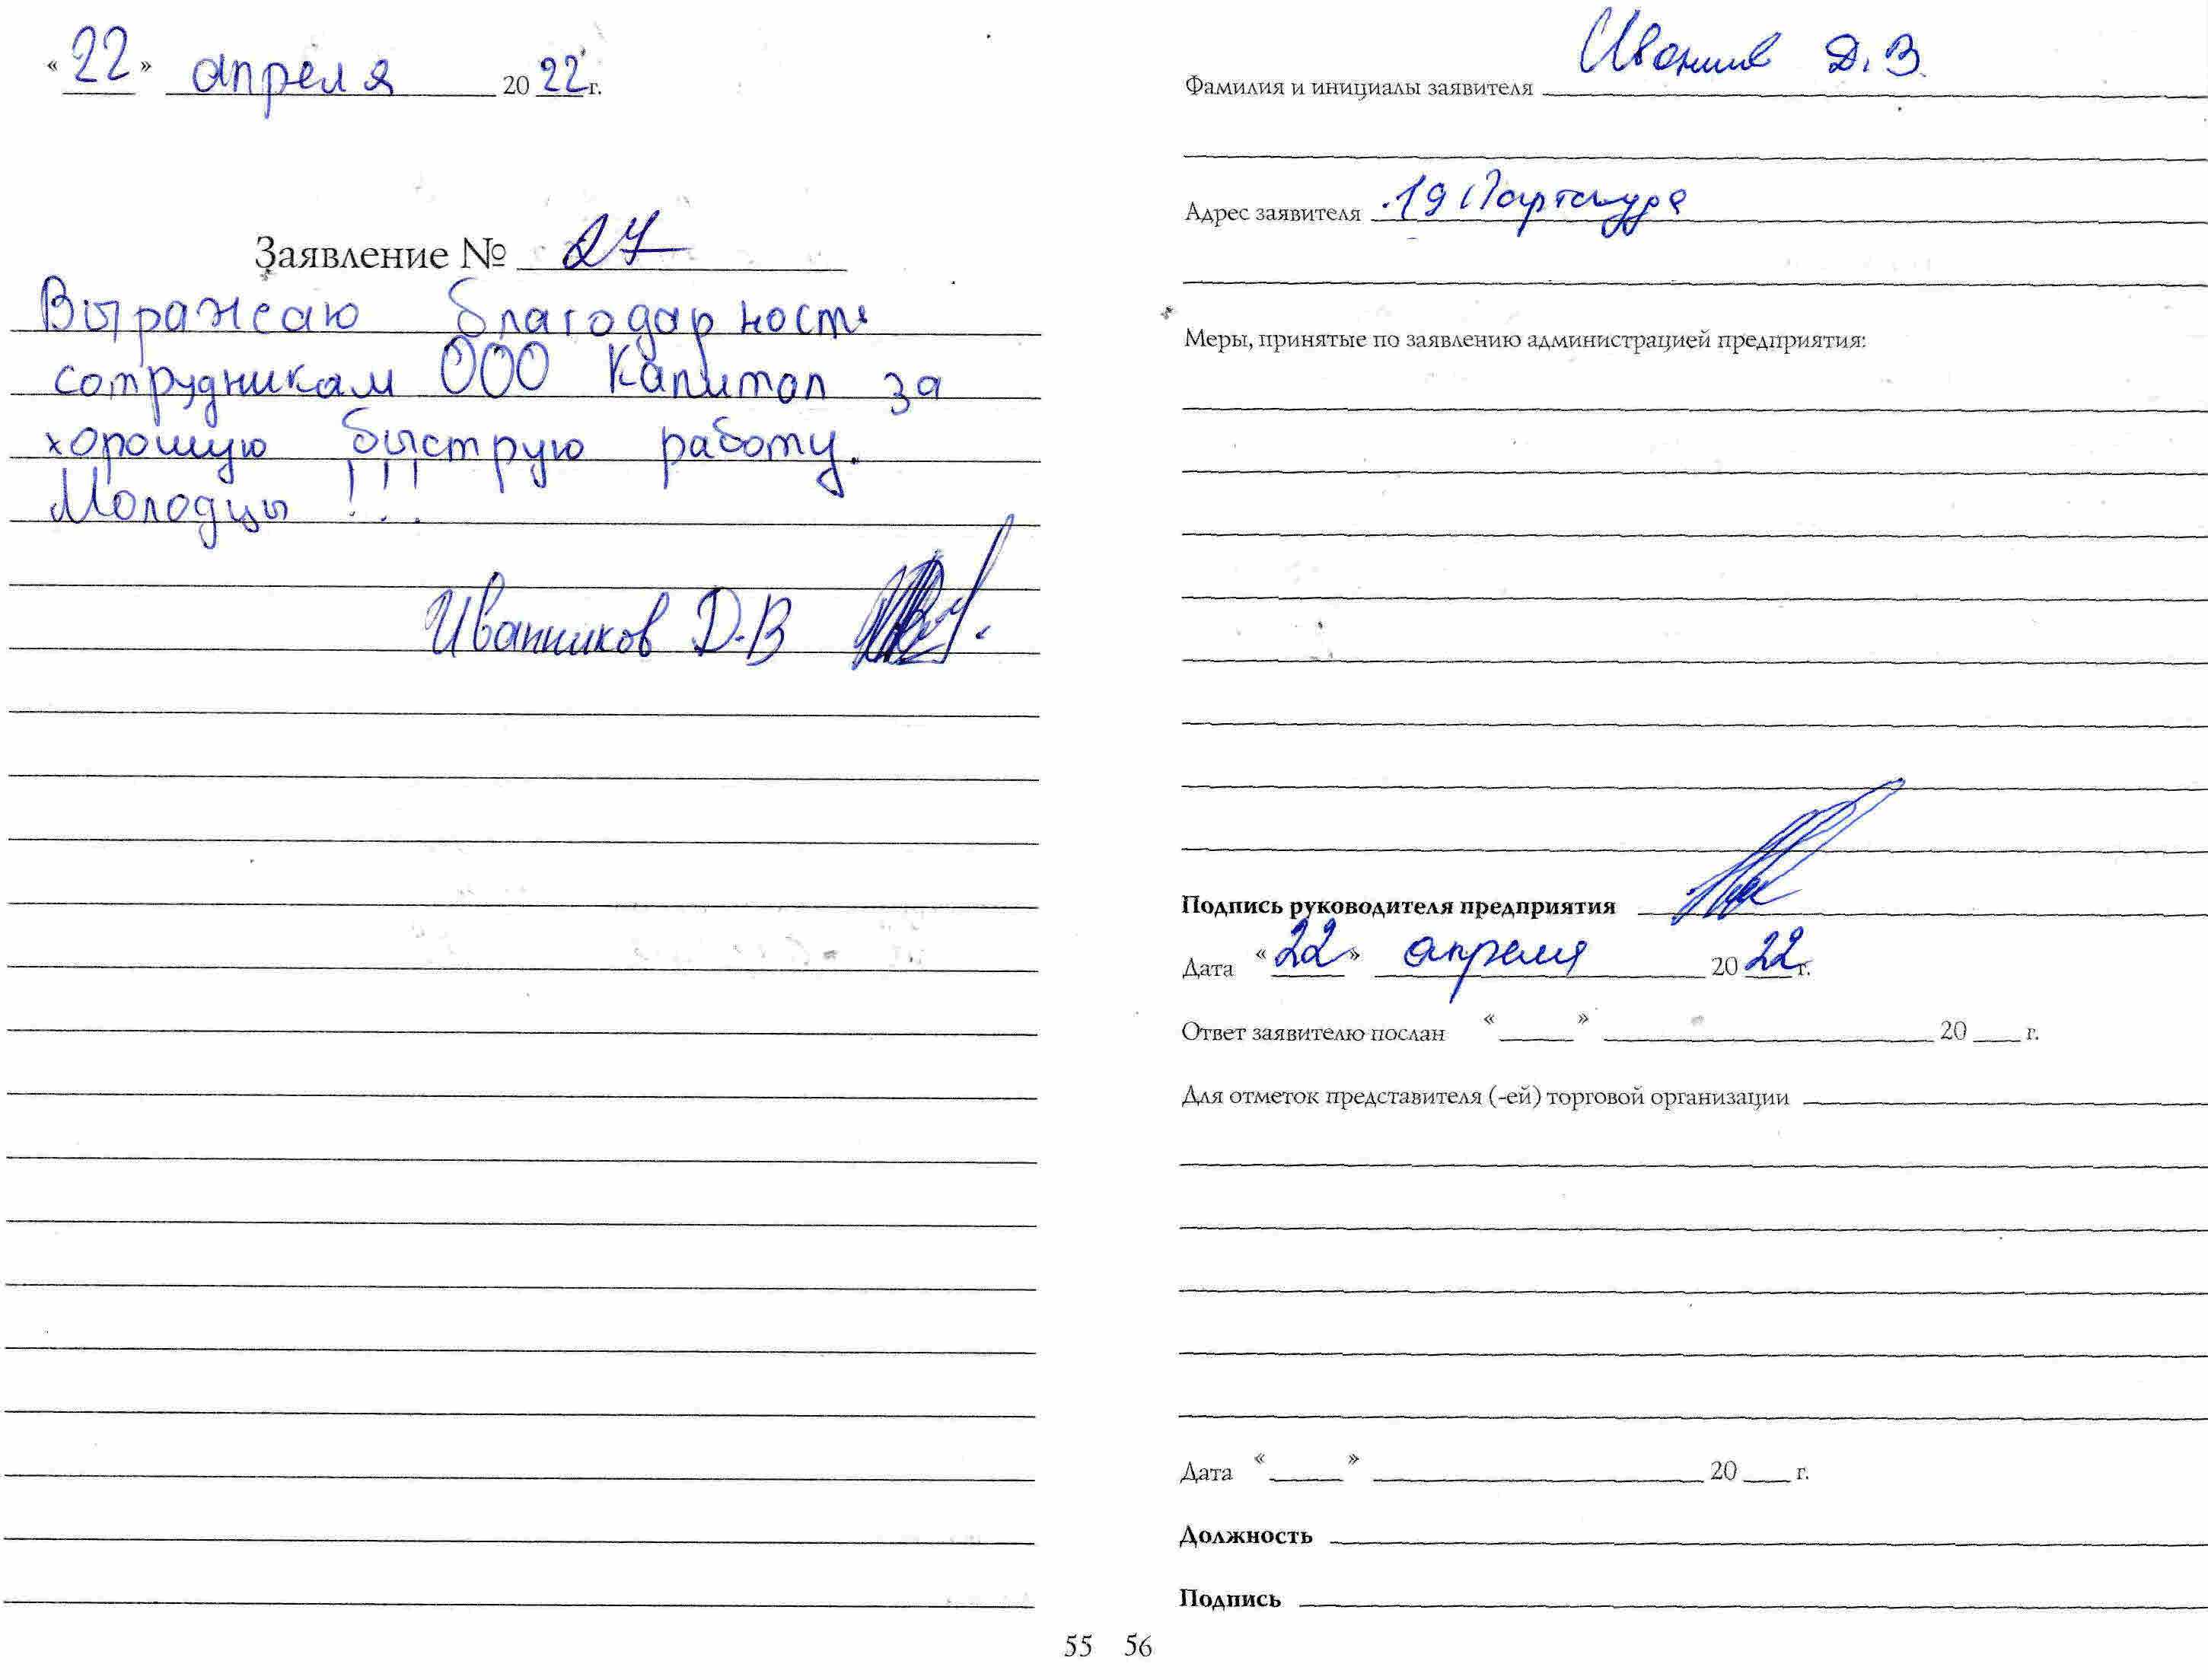 «22» апреля 2022 г.
Заявление № 27
Выражаю благодарность
сотрудникам ООО Капитал за
хорошую быструю работу.
Молодцы !!!
Иванников Д.В
55
Фамилия и инициалы заявителя Д.В.
Адрес заявителя 19 Партсъезда
Меры, принятые по заявлению администрацией предприятия:
Подпись руководителя предприятия
Дата «22» апреля 2022 г.
Ответ заявителю послан « » 20 г.
Для отметок представителя (-ей) торговой организации
Дата « » 20 г.
Должность
Подпись
56